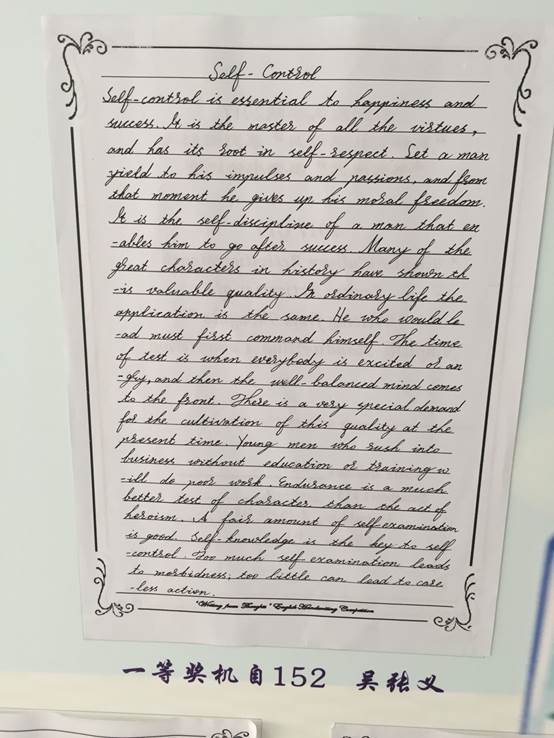 Self-Control
Self-control is essential to happiness and
success. It is the master of all the virtues,
and has its root in self-respect. Let a man
yield to his impulses and passions, and from
that moment he gives up his moral freedom.
It is the self-discipline of a man that en
-ables him to go after success. Many of the
great characters in history have shown th
-is valuable quality. In ordinary life the
application is the same. He who would le
-ad must first command himself. The time
of test is when everybody is excited or an
-gry, and then the well-balanced mind comes
to the front. There is a very special demand
for the cultivation of this quality at the
present time. Young men who rush into
business without education or training w
-ill do poor work. Endurance is a much
better test of character than the act of
heroism. A fair amount of self examination
is good. Self-knowledge is the key to self
-control. Too much self examination leads
to morbidness; too little can lead to care
-less action.
"Writing from Thoughts" English Handwriting Competition
一等奖机自152 吴张义